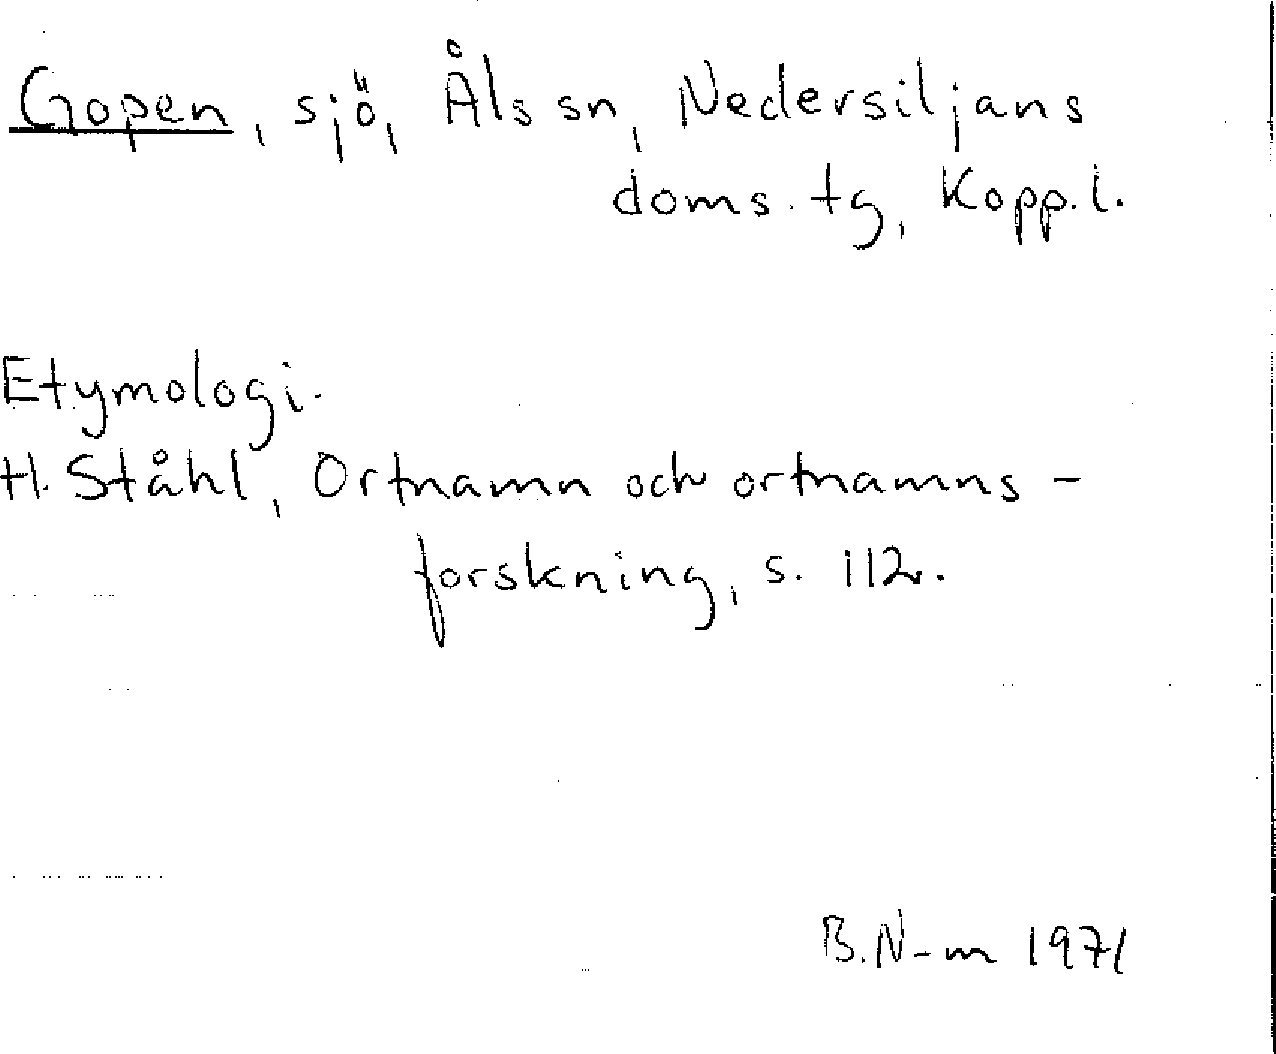 Gopen, sjö, Åls sn, Nedersiljans
doms. tg, Kopp. l.
Etymologi.
H. Ståhl, Ortnamn och ortnamns-
forskning, s. 112.
B. N-m 1971